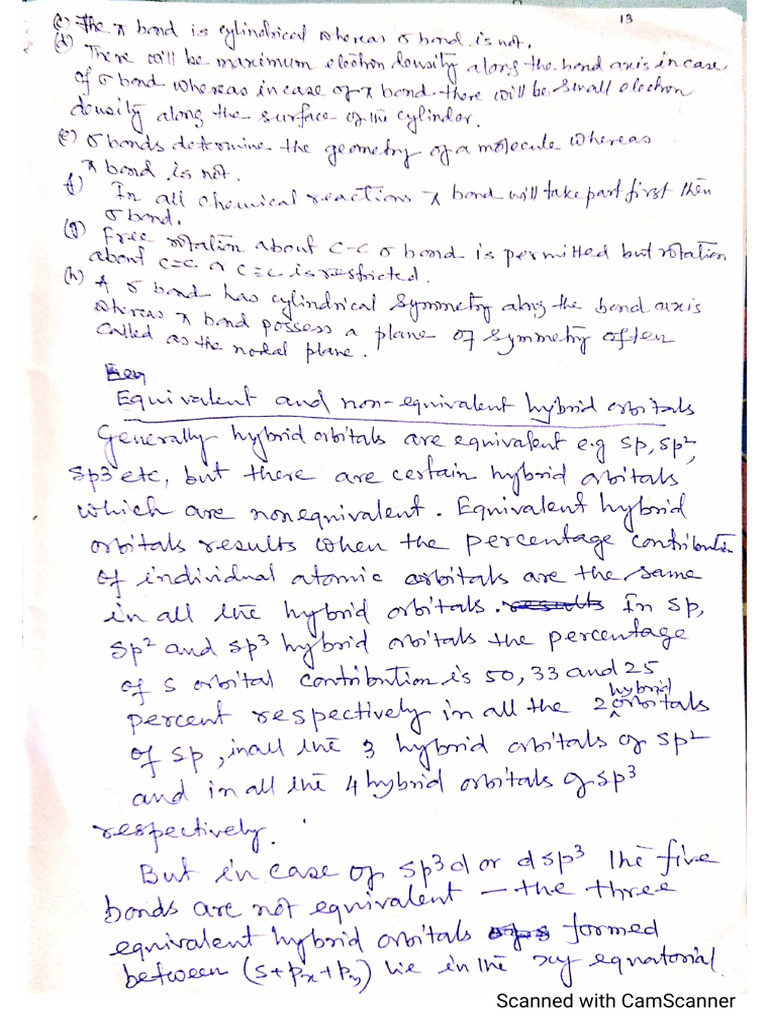 13
(c) The π bond is cylindrical whereas σ bond is not.
(d) There will be maximum electron density along the bond axis in case
of σ bond whereas in case of π bond there will be small electron
density along the surface of the cylinder.
(e) σ bonds determine the geometry of a molecule whereas
π bond is not.
f) In all chemical reactions π bond will take part first then
σ bond.
(g) Free rotation about C-C σ bond is permitted but rotation
about C=C or C≡C is restricted.
(h) A σ bond has cylindrical symmetry along the bond axis
whereas π bond possess a plane of symmetry often
called as the nodal plane.
Equivalent and non-equivalent hybrid orbitals
Generally hybrid orbitals are equivalent e.g sp, sp²,
sp3 etc, but there are certain hybrid orbitals
which are nonequivalent. Equivalent hybrid
orbitals results when the percentage contribution
of individual atomic orbitals are the same
in all the hybrid orbitals. results In sp,
sp² and sp³ hybrid orbitals the percentage
of s orbital contribution is 50, 33 and 25
percent respectively in all the 2 hybrid orbitals
of sp, in all the 3 hybrid orbitals of sp²
and in all the 4 hybrid orbitals of sp³
respectively.
But in case of sp³d or dsp³ the five
bonds are not equivalent – the three
equivalent hybrid orbitals formed
between (s+px+py) lie in the xy equatorial
Scanned with CamScanner